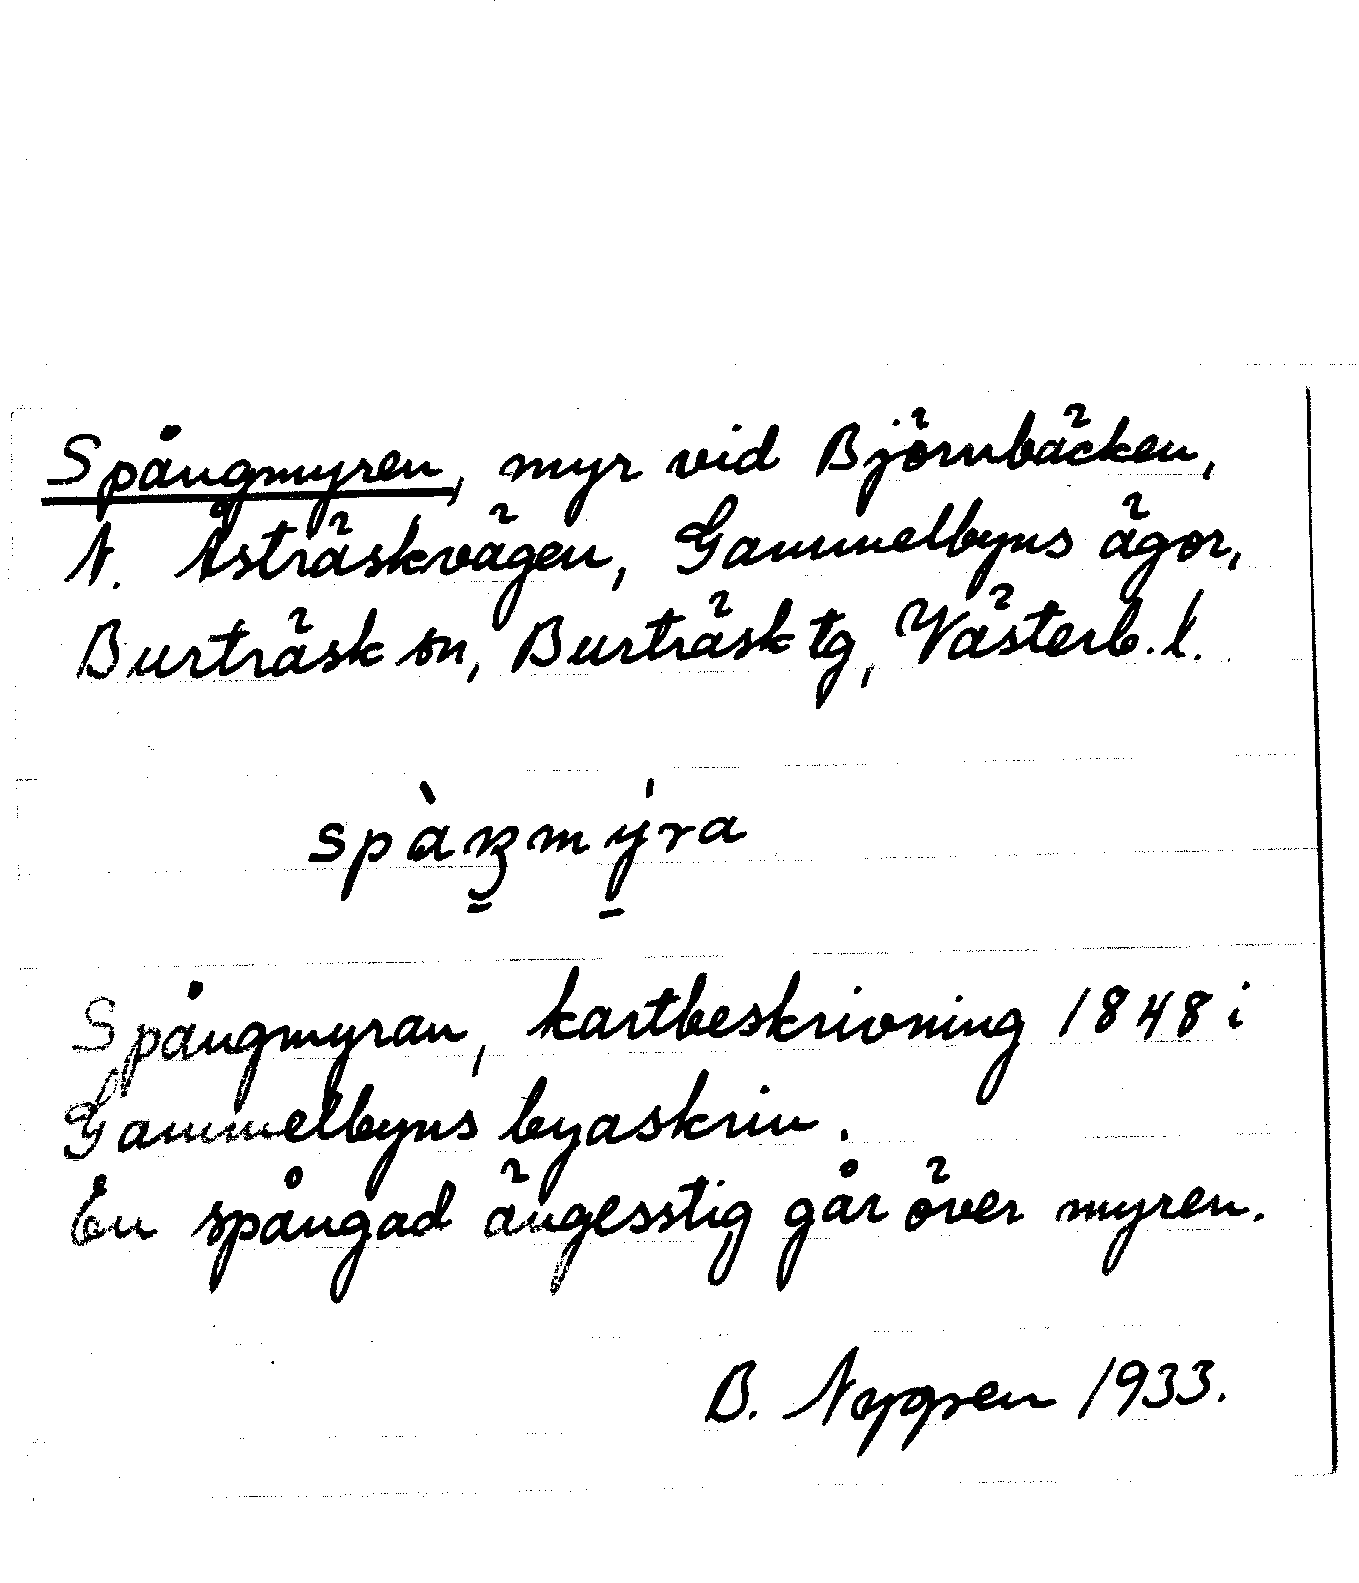 Spångmyren, myr vid Björnbäcken,
N. Åsträskvägen, Gammelbyns ägor,
Burträsk sn, Burträsk tg, Västerb. l.
Spångmyran, kartbeskrivning 1848 i
Gammelbyns byaskrin.
En spångad ängesstig går över myren.
B. Nygren 1933.